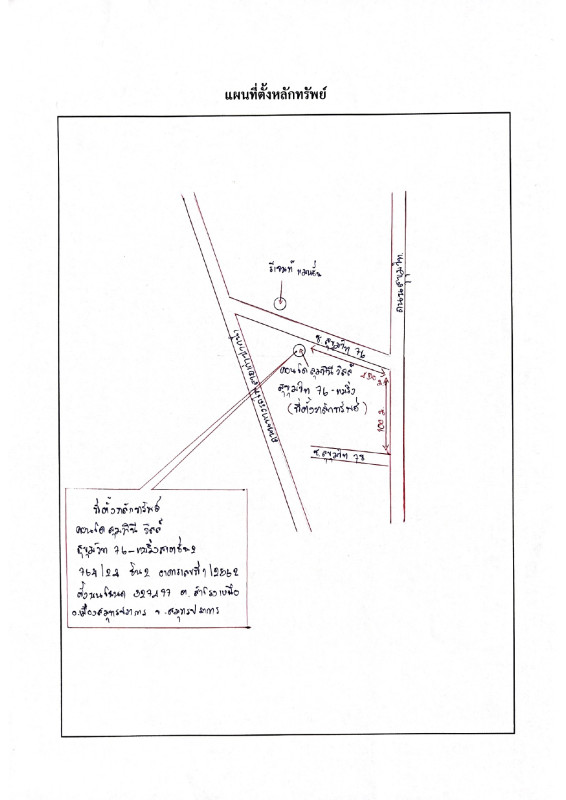 แผนที่ตั้งหลักทรัพย์
รีเจนท์ แมนชั่น
ถนนสุขุมวิท
ซ.สุขุมวิท 76
คอนโด ลุมพินี วิลล์
สุขุมวิท 76-แบริ่ง
(ที่ตั้งหลักทรัพย์)
100 ม.
ซ.สุขุมวิท 78
ที่ตั้งหลักทรัพย์
คอนโด ลุมพินี วิลล์
สุขุมวิท 76-แบริ่งสเตชั่น2
764/24 ชั้น2 อาคารเลขที่
ตั้งบนโฉนด 327497 ต.สำโรงเหนือ
อ.เมืองสมุทรปราการ จ.สมุทรปราการ